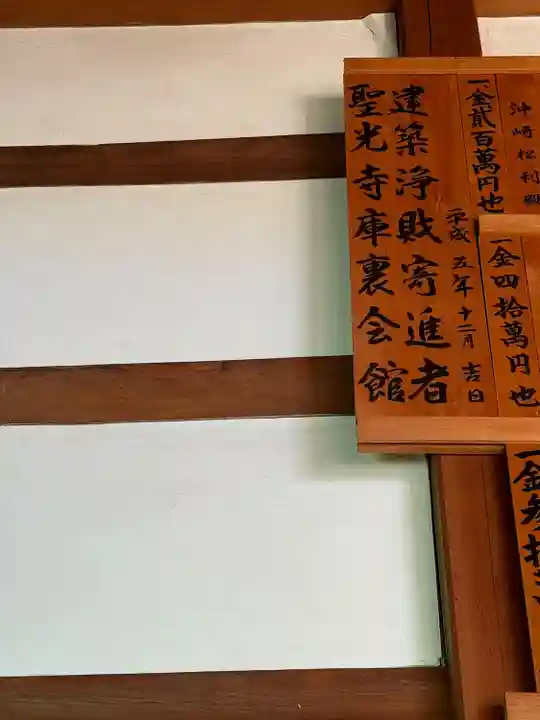 聖光寺庫裏会館
建築浄財寄進者
平成五年十二月吉日
一金貳百萬円也
沖崎松利
一金四拾萬円也
一金参拾